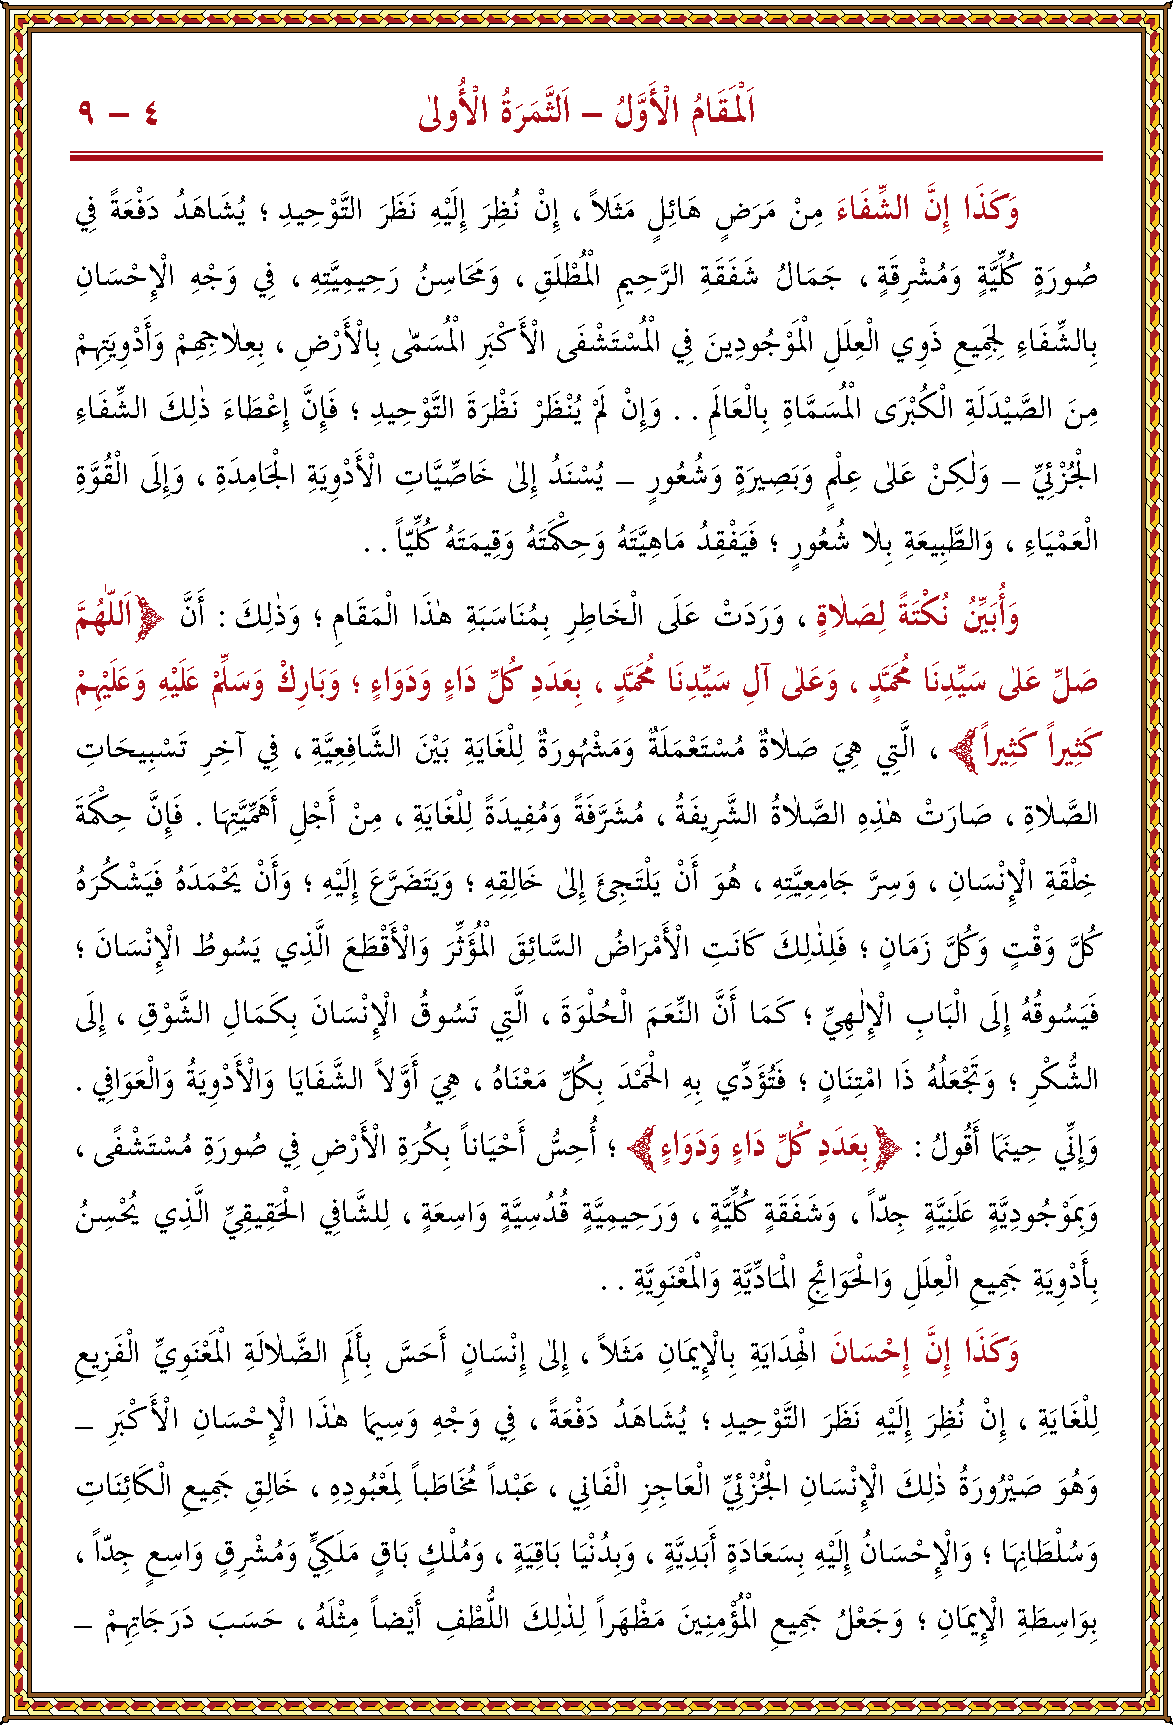 اَلْمَقَامُ الْأَوَّلُ – اَلثَّمَرَةُ الْأُولٰى ٤ – ٩
وَكَذَا إِنَّ الشِّفَاءَ مِنْ مَرَضٍ هَائِلٍ مَثَلاً ، إِنْ نُظِرَ إِلَيْهِ نَظَرَ التَّوْحِيدِ ؛ يُشَاهَدُ دَفْعَةً فِي
صُورَةٍ كُلِّيَّةٍ وَمُشْرِقَةٍ ، جَمَالُ شَفَقَةِ الرَّحِيمِ الْمُطْلَقِ ، وَمَحَاسِنُ رَحِيمِيَّتِهِ ، فِي وَجْهِ الْإِحْسَانِ
بِالشِّفَاءِ لِجَمِيعِ ذَوِي الْعِلَلِ الْمَوْجُودِينَ فِي الْمُسْتَشْفَى الْأَكْبَرِ الْمُسَمّٰى بِالْأَرْضِ ، بِعِلَاجِهِمْ وَأَدْوِيَتِهِمْ
مِنَ الصَّيْدَلَةِ الْكُبْرَى الْمُسَمَّاةِ بِالْعَالَمِ . . وَإِنْ لَمْ يُنْظَرْ نَظْرَةَ التَّوْحِيدِ ؛ فَإِنَّ إِعْطَاءَ ذٰلِكَ الشِّفَاءِ
الْجُزْئِيِّ – وَلٰكِنْ عَلٰى عِلْمٍ وَبَصِيرَةٍ وَشُعُورٍ – يُسْنَدُ إِلٰى خَاصِّيَّاتِ الْأَدْوِيَةِ الْجَامِدَةِ ، وَإِلَى الْقُوَّةِ
الْعَمْيَاءِ ، وَالطَّبِيعَةِ بِلَا شُعُورٍ ؛ فَيَفْقِدُ مَاهِيَّتَهُ وَحِكْمَتَهُ وَقِيمَتَهُ كُلِّيّاً . .
وَأُبَيِّنُ نُكْتَةً لِصَلَاةٍ ، وَرَدَتْ عَلَى الْخَاطِرِ بِمُنَاسَبَةِ هٰذَا الْمَقَامِ ؛ وَذٰلِكَ : أَنَّ ﴿اَللّٰهُمَّ
صَلِّ عَلٰى سَيِّدِنَا مُحَمَّدٍ ، وَعَلٰى آلِ سَيِّدِنَا مُحَمَّدٍ ، بِعَدَدِ كُلِّ دَاءٍ وَدَوَاءٍ ؛ وَبَارِكْ وَسَلِّمْ عَلَيْهِ وَعَلَيْهِمْ
كَثِيراً كَثِيراً﴾ ، الَّتِي هِيَ صَلَاةٌ مُسْتَعْمَلَةٌ وَمَشْهُورَةٌ لِلْغَايَةِ بَيْنَ الشَّافِعِيَّةِ ، فِي آخِرِ تَسْبِيحَاتِ
الصَّلَاةِ ، صَارَتْ هٰذِهِ الصَّلَاةُ الشَّرِيفَةُ ، مُشَرَّفَةً وَمُفِيدَةً لِلْغَايَةِ ، مِنْ أَجْلِ أَهَمِّيَّتِهَا . فَإِنَّ حِكْمَةَ
خِلْقَةِ الْإِنْسَانِ ، وَسِرَّ جَامِعِيَّتِهِ ، هُوَ أَنْ يَلْتَجِئَ إِلٰى خَالِقِهِ ؛ وَيَتَضَرَّعَ إِلَيْهِ ؛ وَأَنْ يَحْمَدَهُ فَيَشْكُرَهُ
كُلَّ وَقْتٍ وَكُلَّ زَمَانٍ ؛ فَلِذٰلِكَ كَانَتِ الْأَمْرَاضُ السَّائِقَ الْمُؤَثِّرَ وَالْأَقْطَعَ الَّذِي يَسُوطُ الْإِنْسَانَ ؛
فَيَسُوقُهُ إِلَى الْبَابِ الْإِلٰهِيِّ ؛ كَمَا أَنَّ النِّعَمَ الْحُلْوَةَ ، الَّتِي تَسُوقُ الْإِنْسَانَ بِكَمَالِ الشَّوْقِ ، إِلَى
الشُّكْرِ ؛ وَتَجْعَلُهُ ذَا امْتِنَانٍ ؛ فَتُؤَدِّي بِهِ الْحَمْدَ بِكُلِّ مَعْنَاهُ ، هِيَ أَوَّلاً الشَّفَايَا وَالْأَدْوِيَةُ وَالْعَوَافِي .
وَإِنِّي حِينَمَا أَقُولُ : ﴿بِعَدَدِ كُلِّ دَاءٍ وَدَوَاءٍ﴾ ؛ أُحِسُّ أَحْيَاناً بِكُرَةِ الْأَرْضِ فِي صُورَةِ مُسْتَشْفًى ،
وَبِمَوْجُودِيَّةٍ عَلَنِيَّةٍ جِدّاً ، وَشَفَقَةٍ كُلِّيَّةٍ ، وَرَحِيمِيَّةٍ قُدُسِيَّةٍ وَاسِعَةٍ ، لِلشَّافِي الْحَقِيقِيِّ الَّذِي يُحْسِنُ
بِأَدْوِيَةِ جَمِيعِ الْعِلَلِ وَالْحَوَائِجِ الْمَادِّيَّةِ وَالْمَعْنَوِيَّةِ . .
وَكَذَا إِنَّ إِحْسَانَ الْهِدَايَةِ بِالْإِيمَانِ مَثَلاً ، إِلٰى إِنْسَانٍ أَحَسَّ بِأَلَمِ الضَّلَالَةِ الْمَعْنَوِيِّ الْفَزِيعِ
لِلْغَايَةِ ، إِنْ نُظِرَ إِلَيْهِ نَظَرَ التَّوْحِيدِ ؛ يُشَاهَدُ دَفْعَةً ، فِي وَجْهِ وَسِيمَا هٰذَا الْإِحْسَانِ الْأَكْبَرِ –
وَهُوَ صَيْرُورَةُ ذٰلِكَ الْإِنْسَانِ الْجُزْئِيِّ الْعَاجِزِ الْفَانِي ، عَبْداً مُخَاطَباً لِمَعْبُودِهِ ، خَالِقِ جَمِيعِ الْكَائِنَاتِ
وَسُلْطَانِهَا ؛ وَالْإِحْسَانُ إِلَيْهِ بِسَعَادَةٍ أَبَدِيَّةٍ ، وَبِدُنْيَا بَاقِيَةٍ ، وَمُلْكٍ بَاقٍ مَلَكِيٍّ وَمُشْرِقٍ وَاسِعٍ جِدّاً ،
بِوَاسِطَةِ الْإِيمَانِ ؛ وَجَعْلُ جَمِيعِ الْمُؤْمِنِينَ مَظْهَراً لِذٰلِكَ اللُّطْفِ أَيْضاً مِثْلَهُ ، حَسَبَ دَرَجَاتِهِمْ –